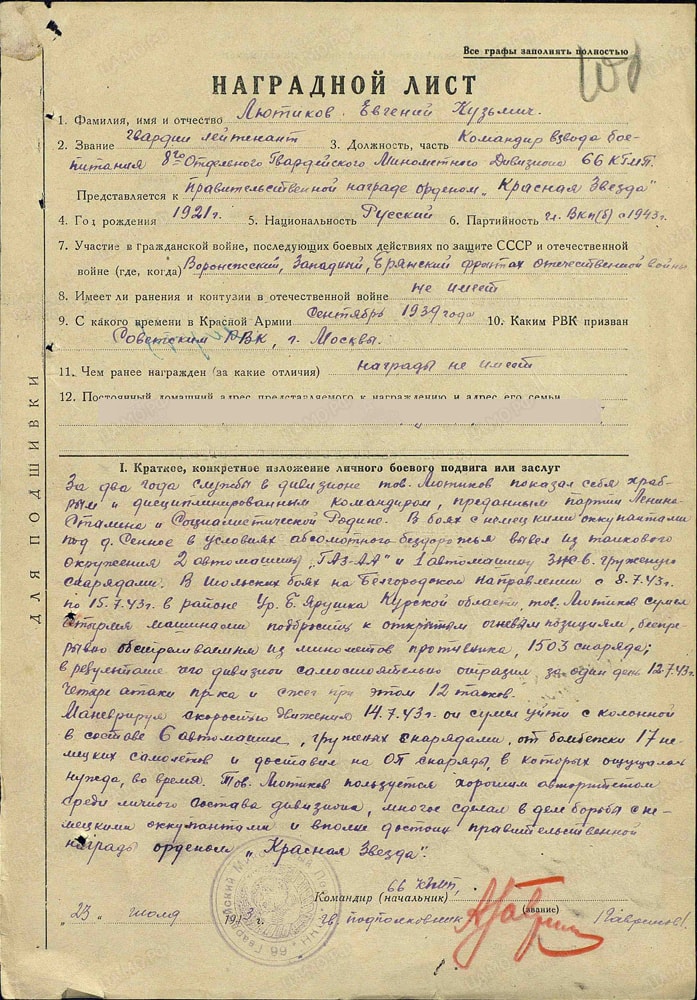 Все графы заполнять полностью
НАГРАДНОЙ ЛИСТ
1. Фамилия, имя и отчество Лютиков Евгений Кузьмич.
2. Звание Гвардии лейтенант 3. Должность, часть Командир взвода бое-
питания 8го Отдельного Гвардейского Минометного Дивизиона 66 КГМП.
Представляется к Правительственной награде орденом „Красная Звезда"
4. Год рождения 1921г. 5. Национальность Русский 6. Партийность чл. ВКП(б) с 1943г.
7. Участие в гражданской войне, последующих боевых действиях по защите СССР и отечественной
войне (где, когда) Воронежский, Западный, Брянский фронтах отечественной войны
8. Имеет ли ранения и контузии в отечественной войне не имеет
9. С какого времени в Красной Армии Сентябрь 1939 года 10. Каким РВК призван
Советским РВК, г. Москвы.
11. Чем ранее награжден (за какие отличия) награды не имеет
12. Постоянный домашний адрес представляемого к награждению и адрес его семьи
ДЛЯ ПОДШИВКИ
I. Краткое, конкретное изложение личного боевого подвига или заслуг
За два года службы в дивизионе тов. Лютиков показал себя храб-
рым и дисциплинированным командиром, преданным партии Ленина-
Сталина и Социалистической Родине. В боях с немецкими оккупантами
под д. Сенное в условиях абсолютного бездорожья вывел из танкового
окружения 2 автомашины „ГАЗ-АА" и 1 автомашину груженую
снарядами. В Июльских боях на Белгородском направлении с 8.7.43г.
по 15.7.43г. в районе Ур. Б. Ярушка Курской области, тов. Лютиков сумел
четырмя машинами подбросить к открытым огневым позициям, беспре-
рывно обстреливаемым из минометов противника, 1503 снаряда;
в результате чего дивизион самостоятельно отразил за один день 12.7.43г.
четыре атаки пр-ка и сжег при этом 12 танков.
Маневрируя скоростью движения 14.7.43г. он сумел уйти с колонной
в составе 6 автомашин, груженых снарядами, от бомбежки 17 не-
мецких самолетов и доставил на ОП снаряды, в которых ощущалась
нужда, во время. Тов. Лютиков пользуется хорошим авторитетом
среди личного состава дивизиона, многое сделал в деле борьбы с не-
мецкими оккупантами и вполне достоин правительственной
награды орденом „Красная Звезда".
66 КГМП,
Командир (начальник)
(звание)
„23" июля 1943г. гв. подполковник